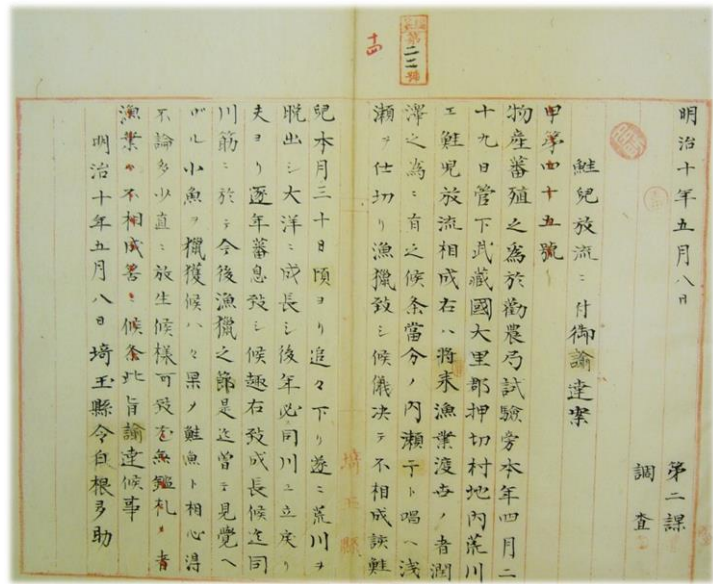 第二二號
十四
明治十年五月八日
第二課
調査
鮭兒放流ニ付御諭達案
甲第四十五號
物産蕃殖之爲於勸農局試驗旁本年四月二
十九日管下武藏國大里郡押切村地内荒川
エ鮭兒放流相成右ハ將来漁業渡世ノ者潤
澤之為ニ有之候条當今ノ内瀬干ト唱ヘ浅
瀬ヲ仕切リ漁獵致シ候儀决テ不相成該鮭
兒本月三十日頃ヨリ追々下リ遂ニ荒川ヲ
脱出シ大洋ニ成長シ後年必同川ニ立戻リ
夫ヨリ逐年蕃息致シ候趣右致成長候迄同
川筋ニ於テ今後漁獵之節是迄曽テ見覺ヘ
ザル小魚ヲ獵獲候ハヽ果メ鮭魚ト相心得
不論多少直ニ放生候様可致尤無鑑札ノ者
漁業ハ不相成筈ニ候条此旨諭達候事
明治十年五月八日 埼玉縣令白根多助
埼玉縣